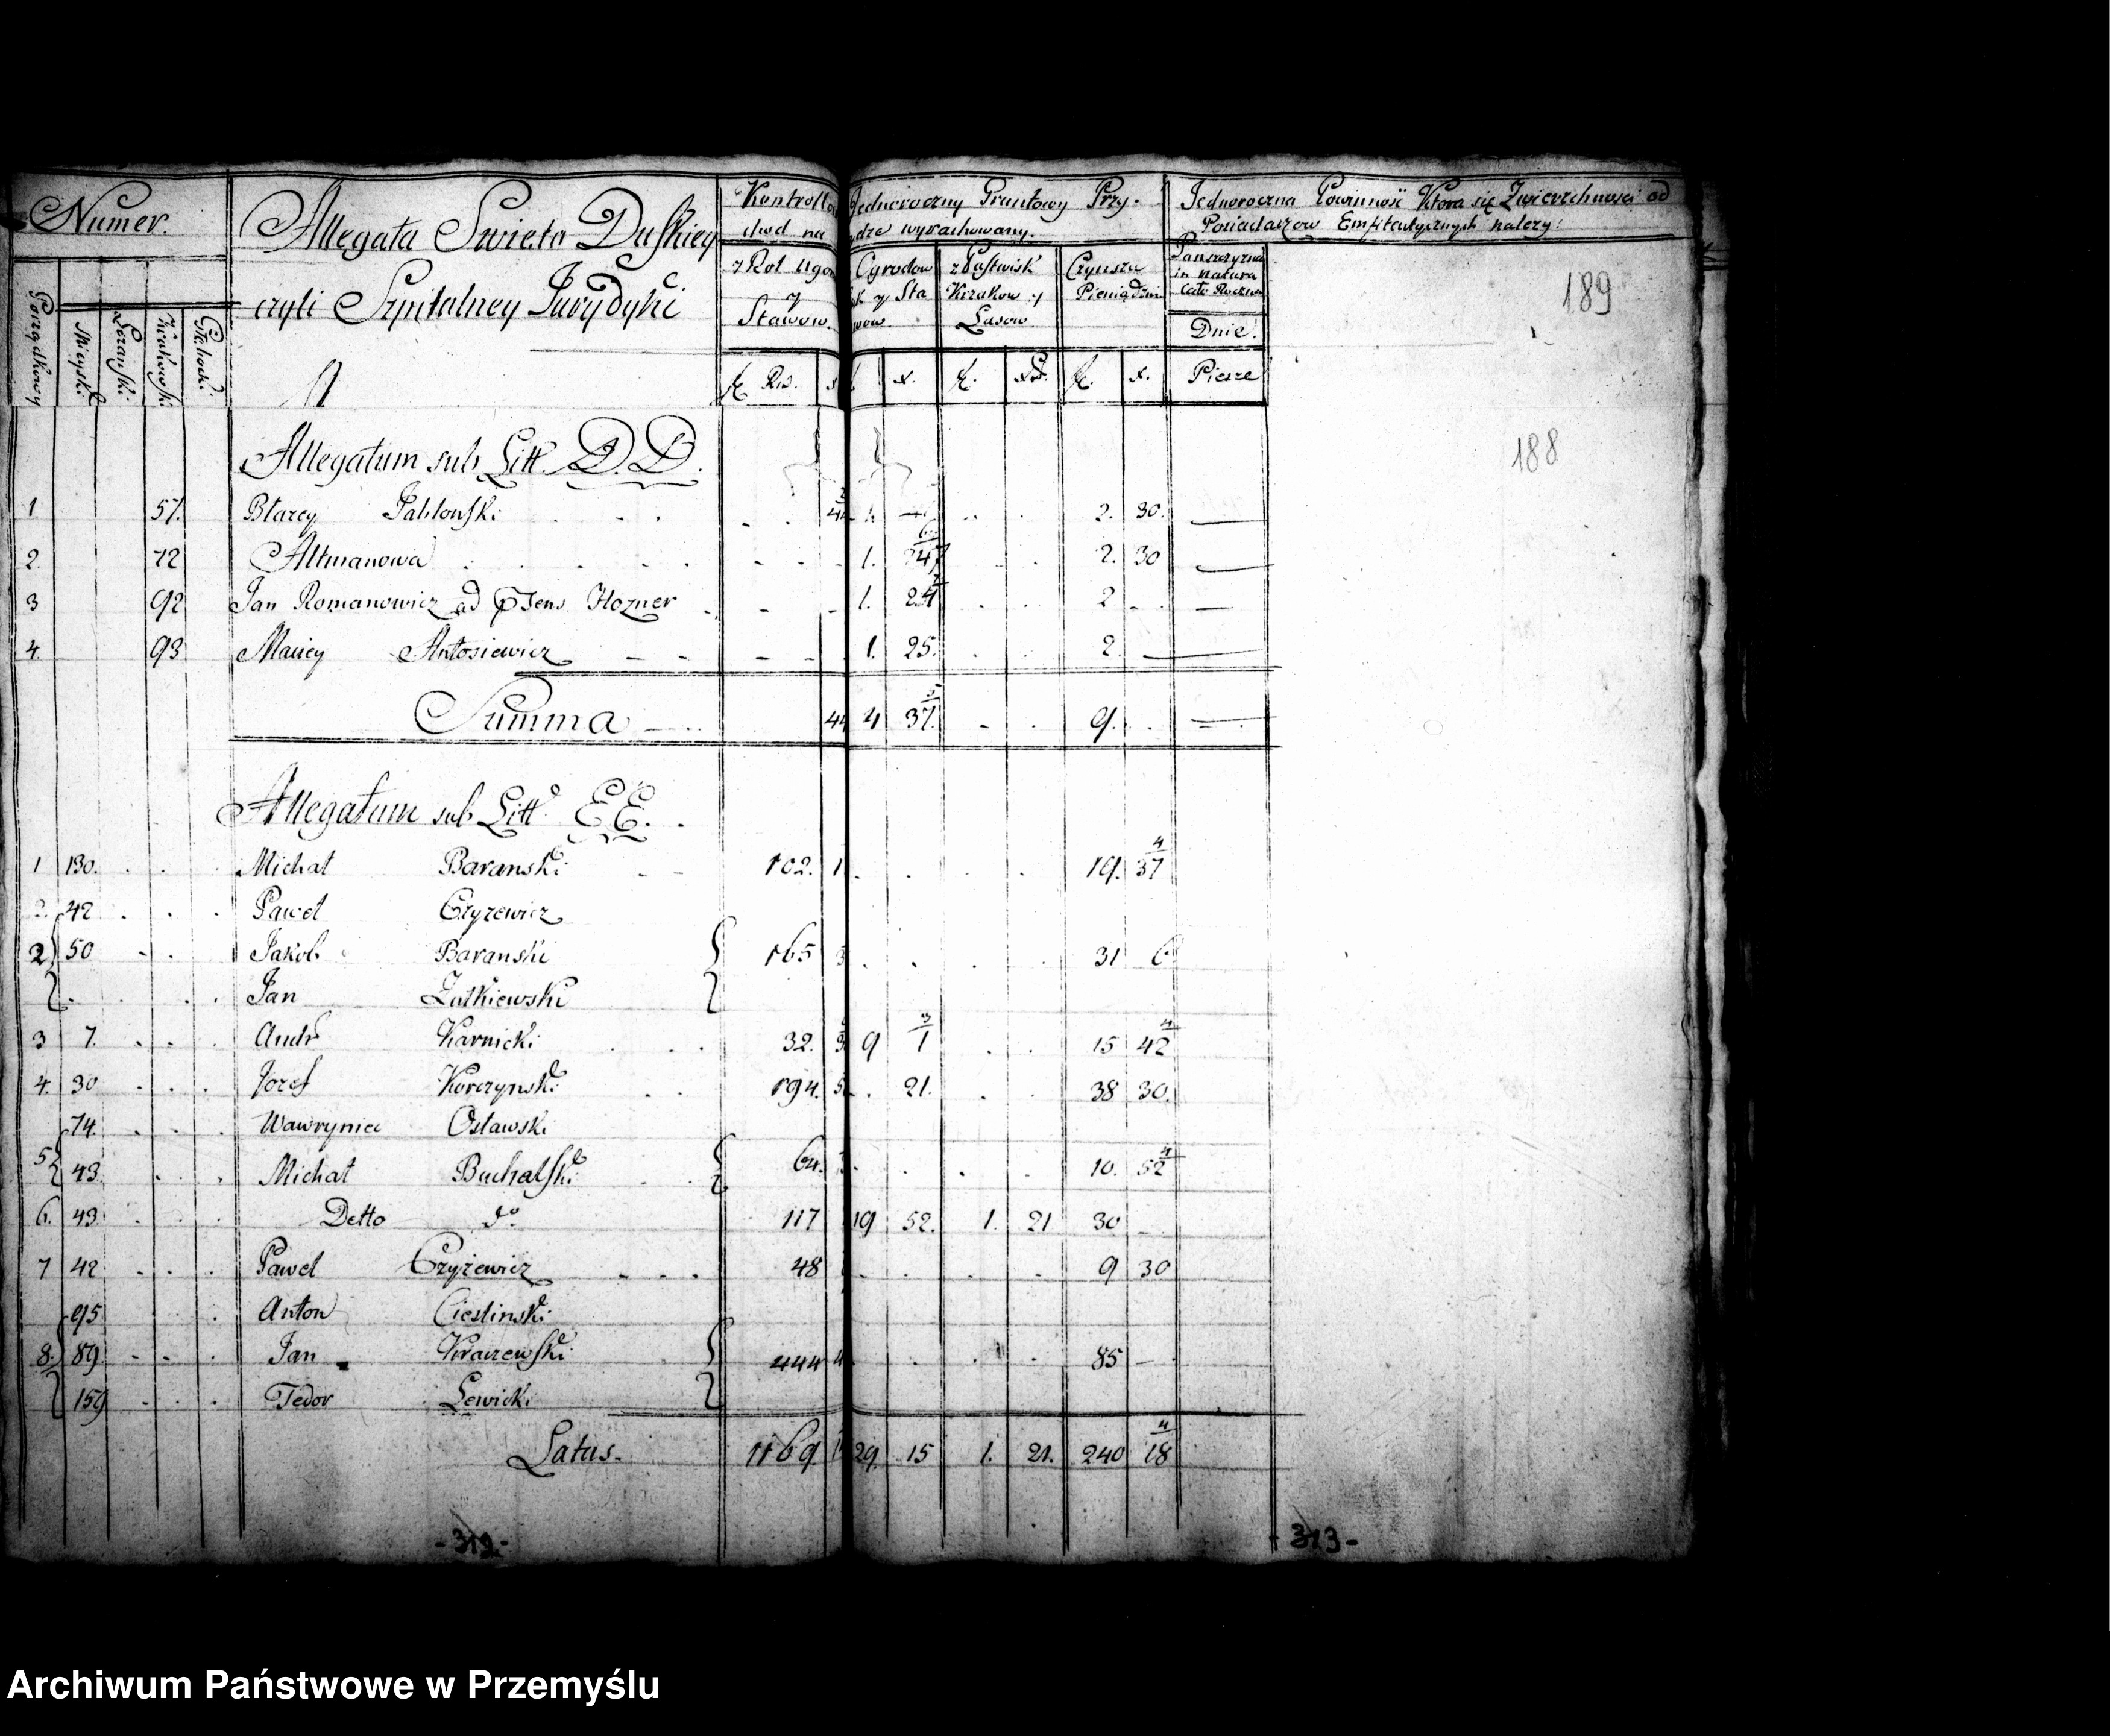 Numer.
Allegata Swieto Duskiey
czyli Szpitalney Jurydyki
A
Porządkowy
Mieyski
Lezanski
Krakowski
Kontrollo Jednoroczny Gruntowy Przy-
chod na ydze wyrachowany.
z Rol Ugor y Stawow.
Ogrodow y Sta wow.
z Pastwisk Krzakow y Lasow
Czynsza Pieniądzmi
Jednoroczna Powinność Ktora się Zwierzchności od
Posiadaczow Emfiteutycznych nalezy:
Panszczyzna in natura Cało Roczna
Dnie.
Piesze
189
188
Allegatum sub Litt. D.D.
1 57. Błazey Jabłonski 2. 30.
2. 72 Altmanowa 1. 2. 30
3 92 Jan Romanowicz ad Hozner 1. 24 2
4. 93 Maciey Antosiewicz 1. 25. 2
Summa 4 37. 9.
Allegatum sub Litt. EE.
1 130. Michał Baranski 102. 19. 37 4
2. 42 Paweł Czyzewicz
2 50 Jakob Baranski 165 31 6
Jan Zatkiewski
3 7. Andr Karnicki 32. 9 1 3 15 42 4
4. 30 Jozef Korczynski 194. 21. 38 30.
74. Wawryniec Osławski
5 43 Michał Buchalski 64. 10. 52 4
6. 43. Detto do 117 19 52. 1. 21 30
7 42 Paweł Czyżewicz 48 9 30
95 Anton Cieslinski
8. 89. Jan Kraczewski 444 85
159 Fedor Lewicki
Latus. 1169. 29. 15 1. 21. 240 18 4
- 312 -
- 313 -
Archiwum Państwowe w Przemyślu